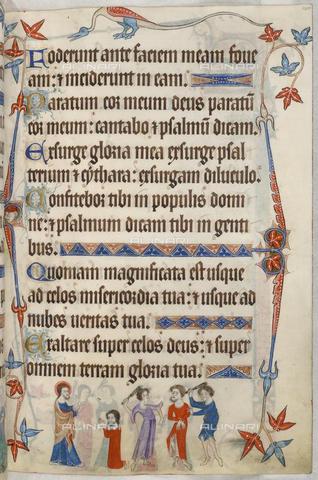 Foderunt ante faciem meam foue
am: ⁊ inciderunt in eam.
Paratum cor meum deus paratū
cor meum: cantabo ⁊ psalmū dicam.
Exsurge gloria mea exsurge psal
terium ⁊ cythara: exsurgam diluculo.
Confitebor tibi in populis domi
ne: ⁊ psalmum dicam tibi in genti
bus.
Quoniam magnificata est usque
ad celos misericordia tua: ⁊ usque ad
nubes ueritas tua.
Exaltare super celos deus: ⁊ super
omnem terram gloria tua:
ALINARI
ALINARI
ALINARI
ALINARI